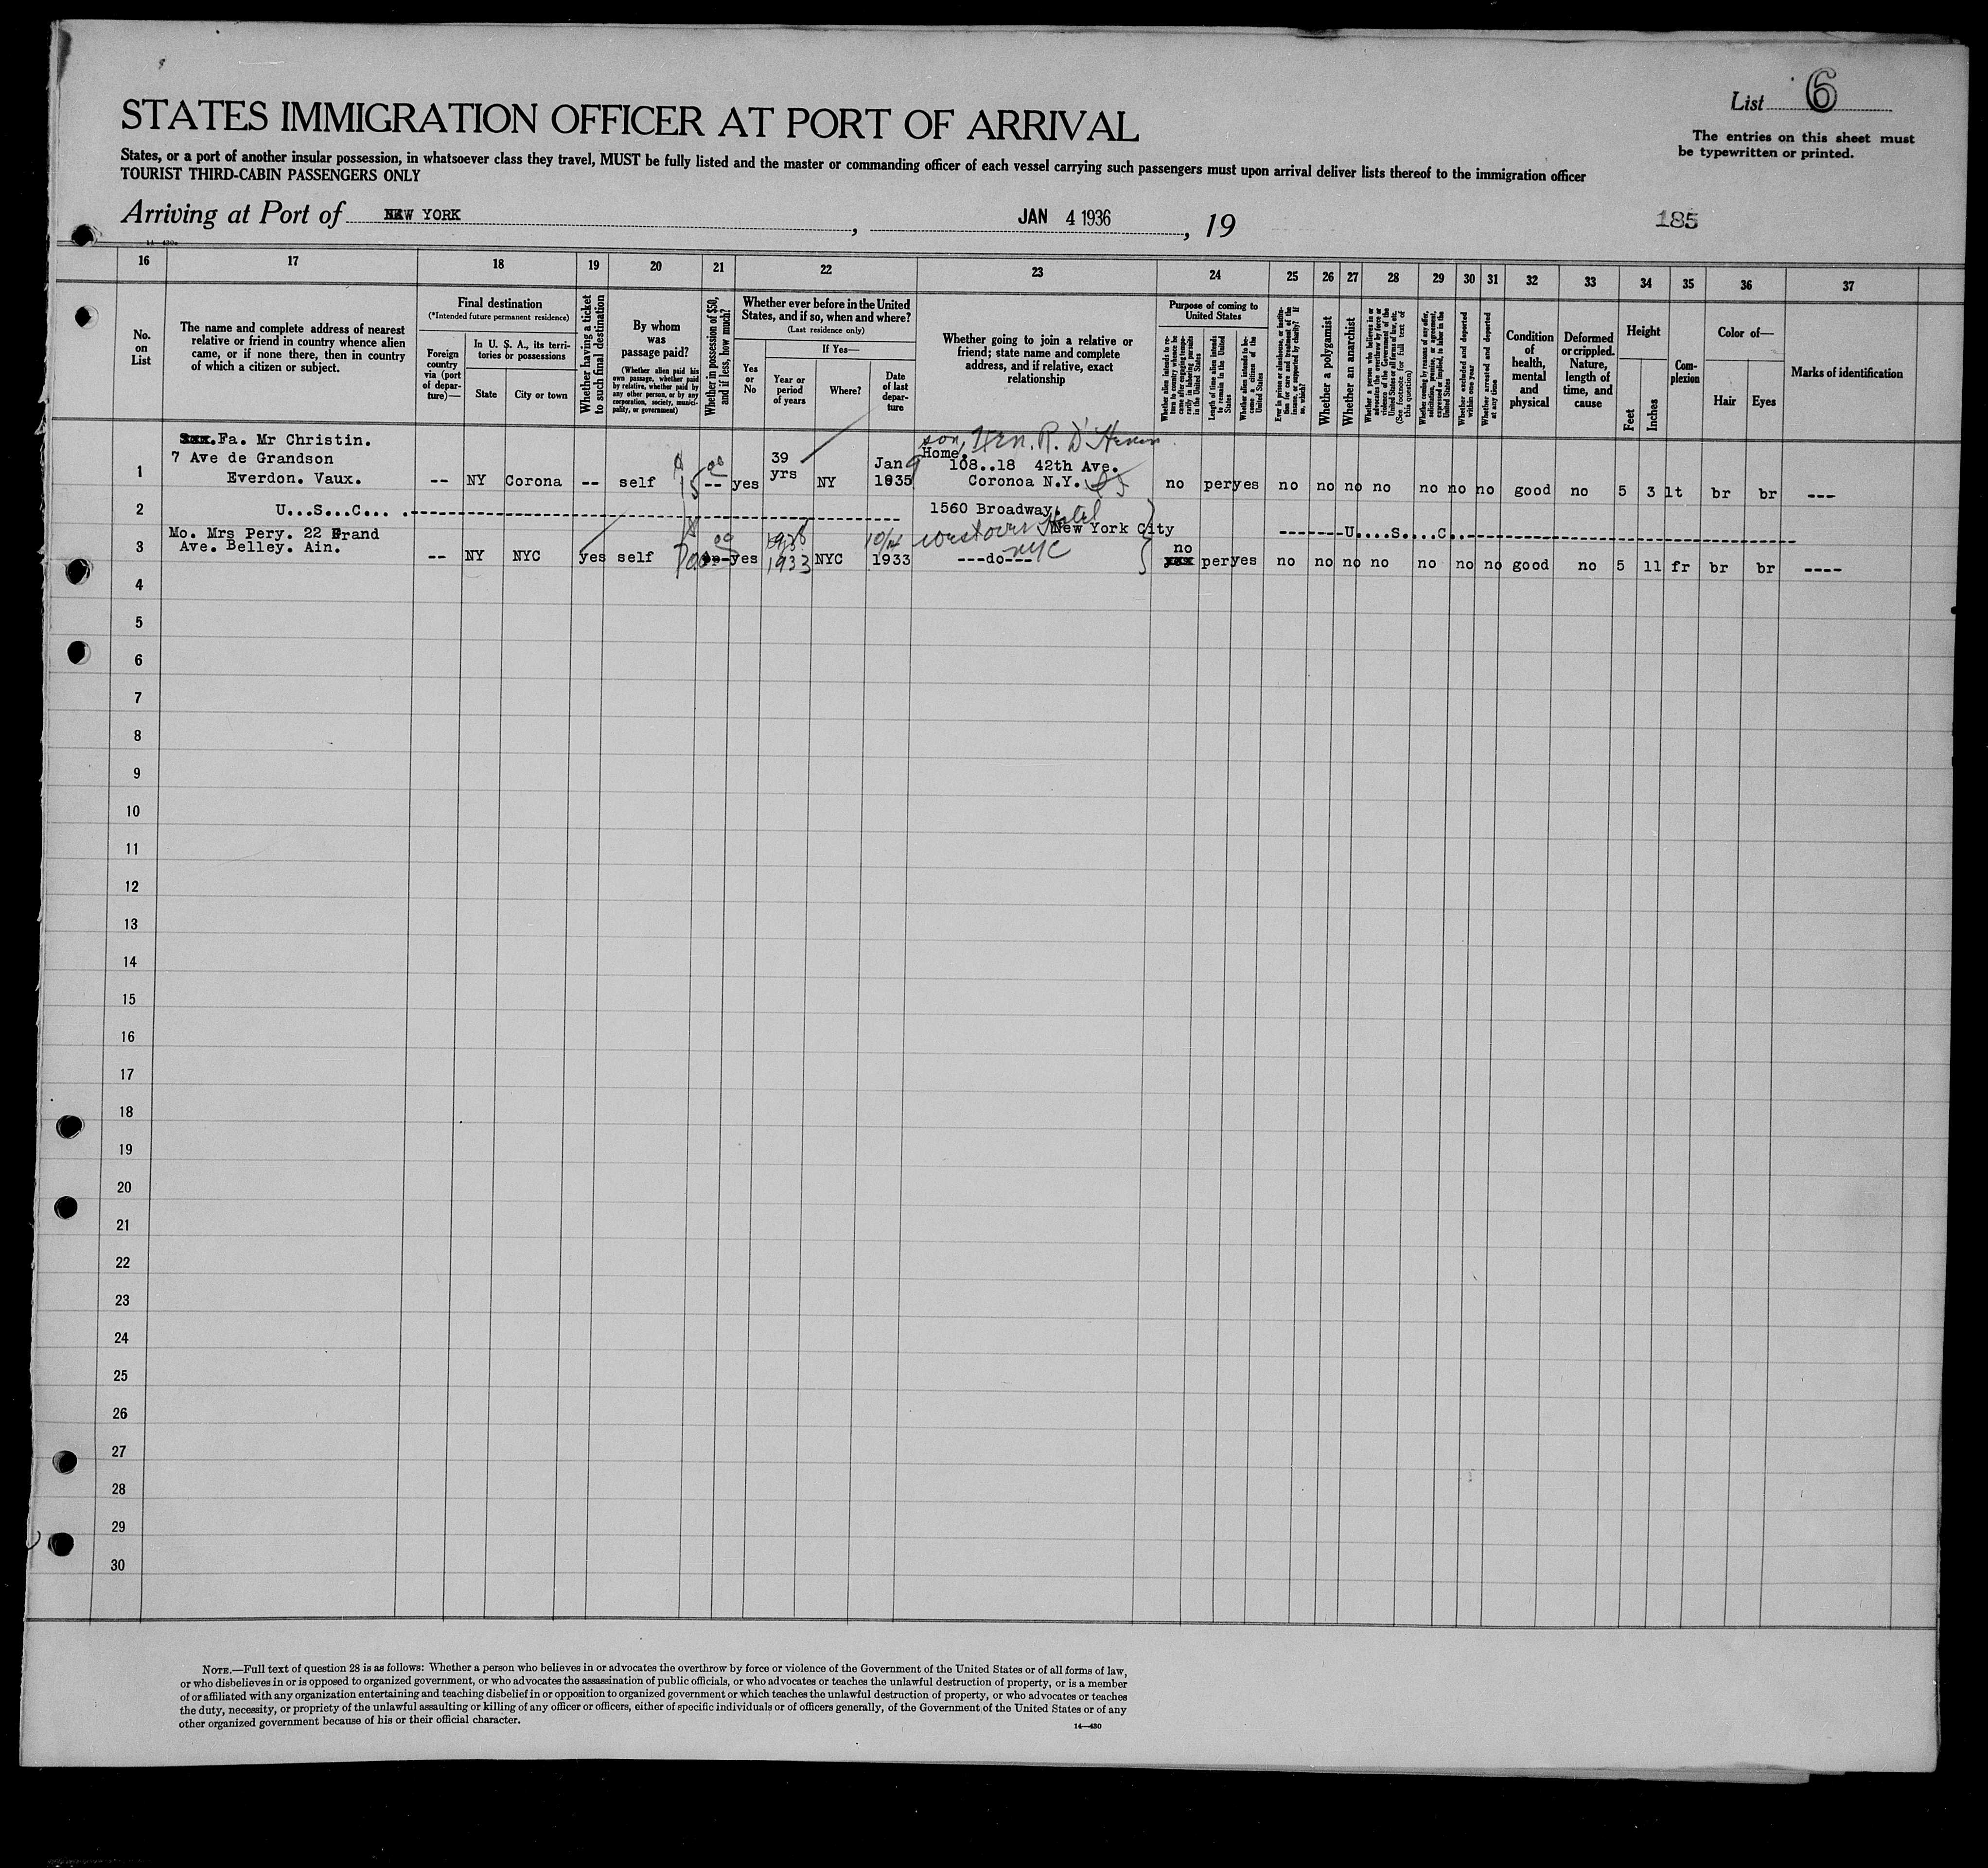 List 6
STATES IMMIGRATION OFFICER AT PORT OF ARRIVAL
The entries on this sheet must
be typewritten or printed.
States, or a port of another insular possession, in whatsoever class they travel, MUST be fully listed and the master or commanding officer of each vessel carrying such passengers must upon arrival deliver lists thereof to the immigration officer
TOURIST THIRD-CABIN PASSENGERS ONLY
Arriving at Port of NEW YORK, JAN 4 1936, 19
185
14—430a
16 17 18 19 20 21 22 23 24 25 26 27 28 29 30 31 32 33 34 35 36 37
No.
on
List
The name and complete address of nearest
relative or friend in country whence alien
came, or if none there, then in country
of which a citizen or subject.
Final destination
(*Intended future permanent residence)
Foreign
country
via (port
of depar-
ture)—
In U. S. A., its terri-
tories or possessions
State
City or town
Whether having a ticket
to such final destination
By whom
was
passage paid?
(Whether alien paid his
own passage, whether paid
by relative, whether paid by
any other person, or by any
corporation, society, munici-
pality, or government)
Whether in possession of $50,
and if less, how much?
Whether ever before in the United
States, and if so, when and where?
(Last residence only)
Yes
or
No
If Yes—
Year or
period
of years
Where?
Date
of last
depar-
ture
Whether going to join a relative or
friend; state name and complete
address, and if relative, exact
relationship
Purpose of coming to
United States
Whether alien intends to re-
turn to country whence he
came after engaging tempo-
rarily in laboring pursuits
in the United States
Length of time alien intends
to remain in the United
States
Whether alien intends to be-
come a citizen of the
United States
Ever in prison or almshouse, or institu-
tion for care and treatment of the
insane, or supported by charity? If
so, which?
Whether a polygamist
Whether an anarchist
Whether a person who believes in or
advocates the overthrow by force or
violence of the Government of the
United States or all forms of law, etc.
(See footnote for full text of
this question)
Whether coming by reasons of any offer,
solicitation, promise, or agreement,
expressed or implied, to labor in the
United States
Whether excluded and deported
within one year
Whether arrested and deported
at any time
Condition
of
health,
mental
and
physical
Deformed
or crippled.
Nature,
length of
time, and
cause
Height
Feet
Inches
Com-
plexion
Color of—
Hair
Eyes
Marks of identification
1
Fa. Mr Christin.
7 Ave de Grandson
Everdon. Vaux.
-- NY Corona -- self 15 00 -- yes
39
yrs
NY
Jan 9
1935
son, Hen. R. D'
Home.
108..18 42th Ave.
Coronoa N.Y.
no per yes no no no no no no no good no 5 3 lt br br ---
2
U...S...C...
1560 Broadway,
Hotel
New York City
-------U....S....C..
3
Mo. Mrs Pery. 22 Grand
Ave. Belley. Ain.
-- NY NYC yes self 700 00 yes 1928
1933 NYC 10/14
1933
---do---
NYC
no
per yes no no no no no no no good no 5 11 fr br br ----
4
5
6
7
8
9
10
11
12
13
14
15
16
17
18
19
20
21
22
23
24
25
26
27
28
29
30
NOTE.—Full text of question 28 is as follows: Whether a person who believes in or advocates the overthrow by force or violence of the Government of the United States or of all forms of law,
or who disbelieves in or is opposed to organized government, or who advocates the assassination of public officials, or who advocates or teaches the unlawful destruction of property, or is a member
of or affiliated with any organization entertaining and teaching disbelief in or opposition to organized government or which teaches the unlawful destruction of property, or who advocates or teaches
the duty, necessity, or propriety of the unlawful assaulting or killing of any officer or officers, either of specific individuals or of officers generally, of the Government of the United States or of any
other organized government because of his or their official character.
14—430